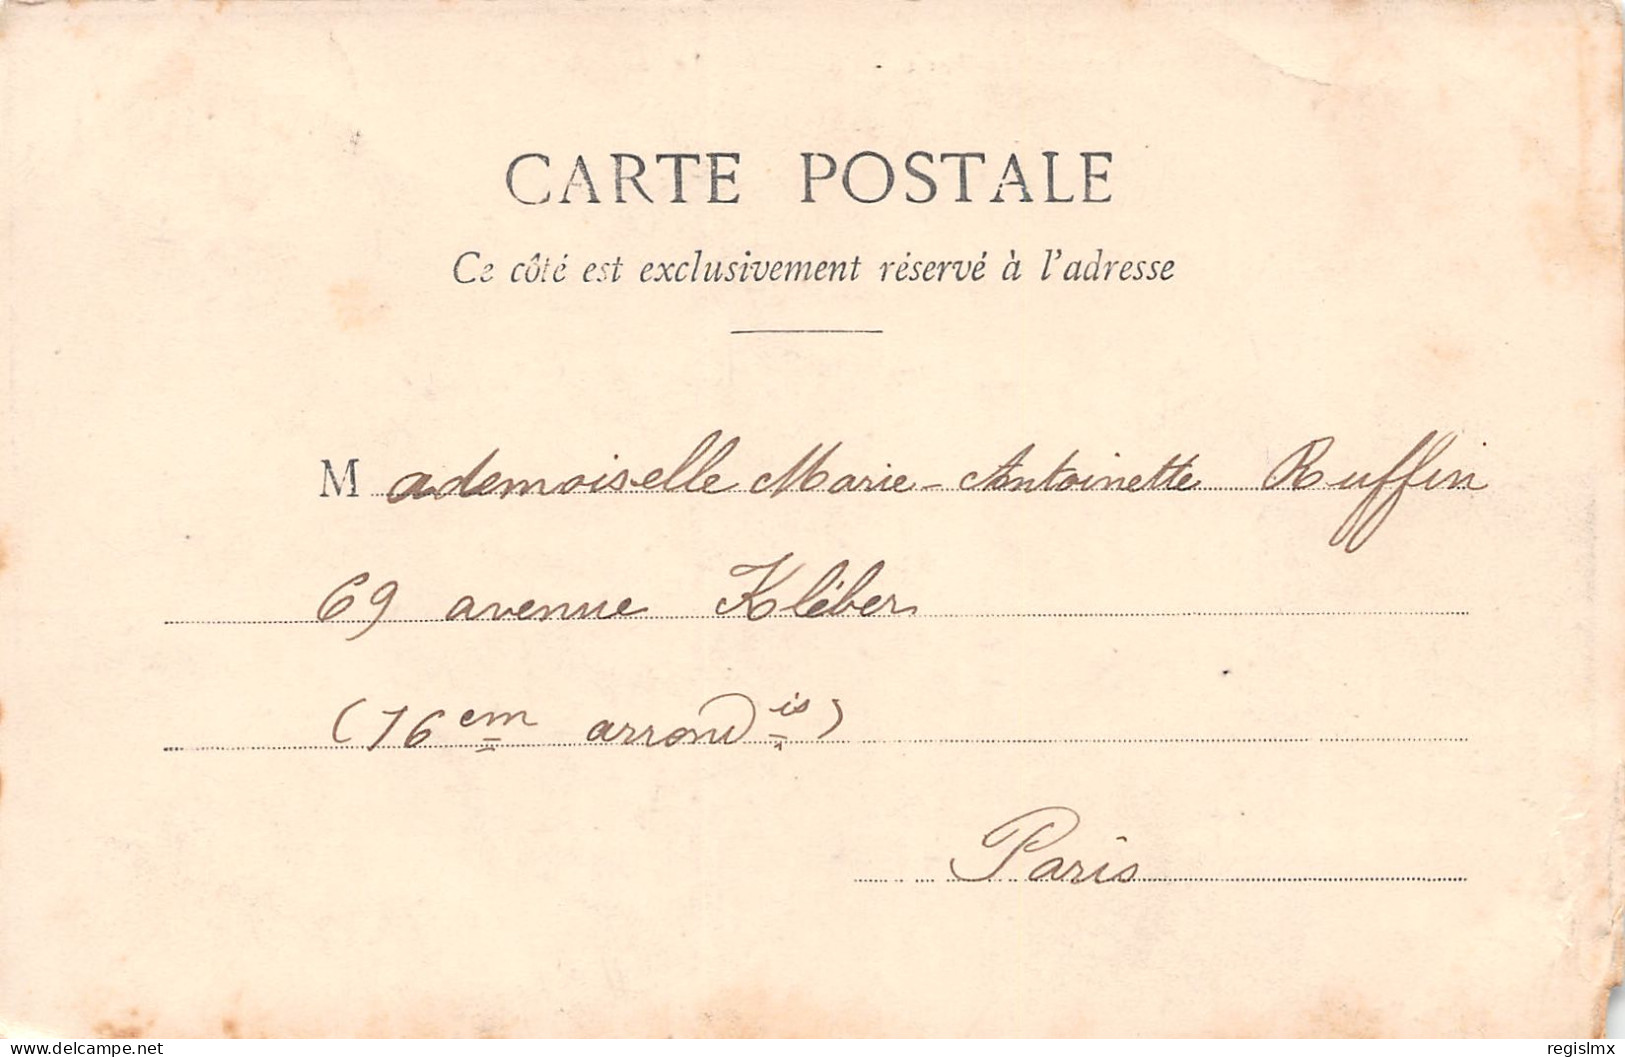 CARTE POSTALE
Ce côté est exclusivement réservé à l'adresse
Mademoiselle Marie-Antoinette Ruffin
69 avenue Kléber
(16em arrondis)
Paris
delcampe.net
regislmx